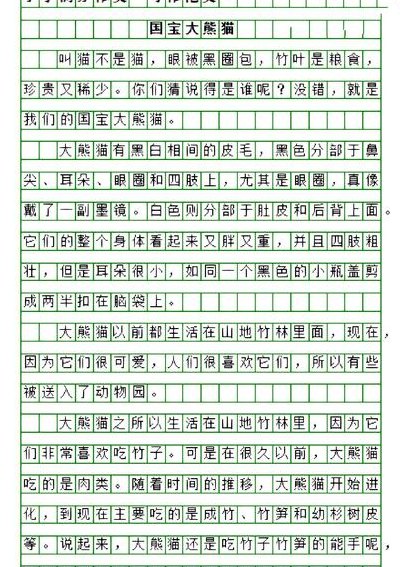 国宝大熊猫
叫猫不是猫，眼被黑圈包，竹叶是粮食，
珍贵又稀少。你们猜说得是谁呢？没错，就是
我们的国宝大熊猫。
大熊猫有黑白相间的皮毛，黑色分部于鼻
尖、耳朵、眼圈和四肢上，尤其是眼圈，真像
戴了一副墨镜。白色则分部于肚皮和后背上面。
它们的整个身体看起来又胖又重，并且四肢粗
壮，但是耳朵很小，如同一个黑色的小瓶盖剪
成两半扣在脑袋上。
大熊猫以前都生活在山地竹林里面，现在，
因为它们很可爱，人们很喜欢它们，所以有些
被送入了动物园。
大熊猫之所以生活在山地竹林里，因为它
们非常喜欢吃竹子。可是在很久以前，大熊猫
吃的是肉类。随着时间的推移，大熊猫开始进
化，到现在主要吃的是成竹、竹笋和幼杉树皮
等。说起来，大熊猫还是吃竹子竹笋的能手呢，